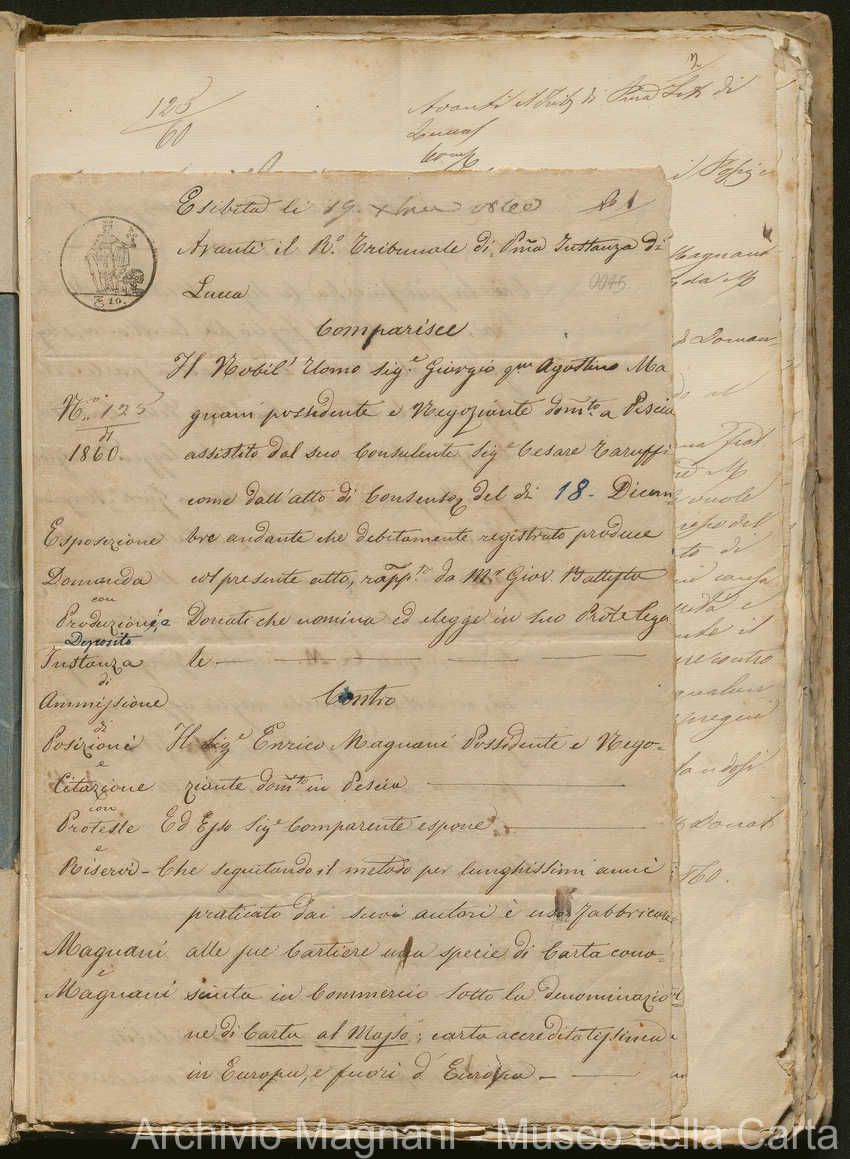 2
125
60
Avanti il Trib. di Pma Ist. di
Lucca
Comp.
Esibita li 19. Xbre 1860
N. 1
Avanti il R.o Tribunale di Pm̃a Instanza di
Lucca
0045
C 10.
Comparisce
Il Nobil' Uomo Sig.e Giorgio qm Agostino Ma
gnani possidente e Negoziante dom.to a Pescia
assistito dal suo Consulente Sig.e Cesare Taruffi
come dall'atto di Consenso del dì 18 - Dicem
bre andante che debitamente registrato produce
col presente atto, rapp.to da M.r Giov. Battista
Donati che nomina ed elegge in suo Proc.e lega
le
N.o 125
di
1860.
Esposizione
Domanda
con
Produzioni, e
Deposito
Instanza
di
Ammissione
di
Posizioni
e
Citazione
con
Proteste
e
Riservi -
Magnani
e
Magnani
Contro
Il Sig.e Enrico Magnani Possidente e Nego-
ziante dom.to in Pescia
Ed Esso Sig.e Comparente espone
Che seguitando il metodo per lunghissimi anni
praticato dai suoi autori è uso fabbricare
alle sue Cartiere una specie di Carta cono-
sciuta in Commercio sotto la denominazio
ne di Carta al Masso; carta accreditatissima
in Europa, e fuori d'Europa -
Magnani
da M
Doman-
Donati
860.
Archivio Magnani - Museo della Carta